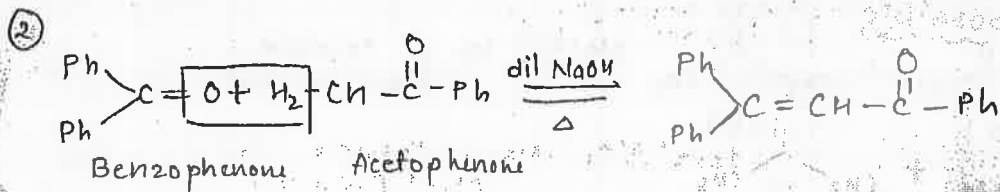 ②
Ph
Ph
C = O + H₂ CH – C – Ph
O
dil NaOH
Δ
Ph
Ph
C = CH – C – Ph
O
Benzophenone Acetophenone